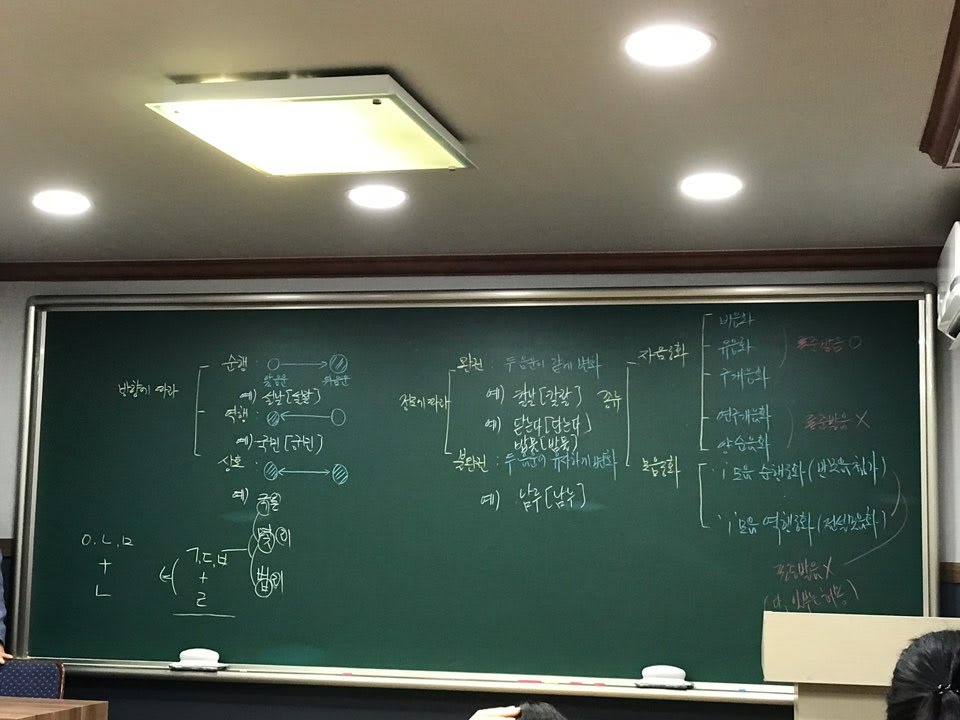 방향에 따라
순행 : ○ → ○
앞음운 뒤음운
예) 설날 [설랄]
역행 : ○ ← ○
예) 국민 [궁민]
상호 : ○ ↔ ○
예) 국론
격리
법리
ㄱ, ㄷ, ㅂ
+
ㄹ
ㅇ, ㄴ, ㅁ
+
ㄴ
정도에 따라
완전 : 두 음운이 같게 변화
예) 칼날 [칼랄]
예) 닫는다 [단는다]
밥못 [밤못]
불완전 : 두 음운이 유사하게 변화
예) 남루 [남누]
종류
자음동화
비음화
유음화
표준발음 ○
구개음화
연구개음화
양순음화
표준발음 X
모음동화
'ㅣ'모음 순행동화 (반모음첨가)
'ㅣ'모음 역행동화 (전설모음화)
표준발음 X
(단, 일부는 허용)